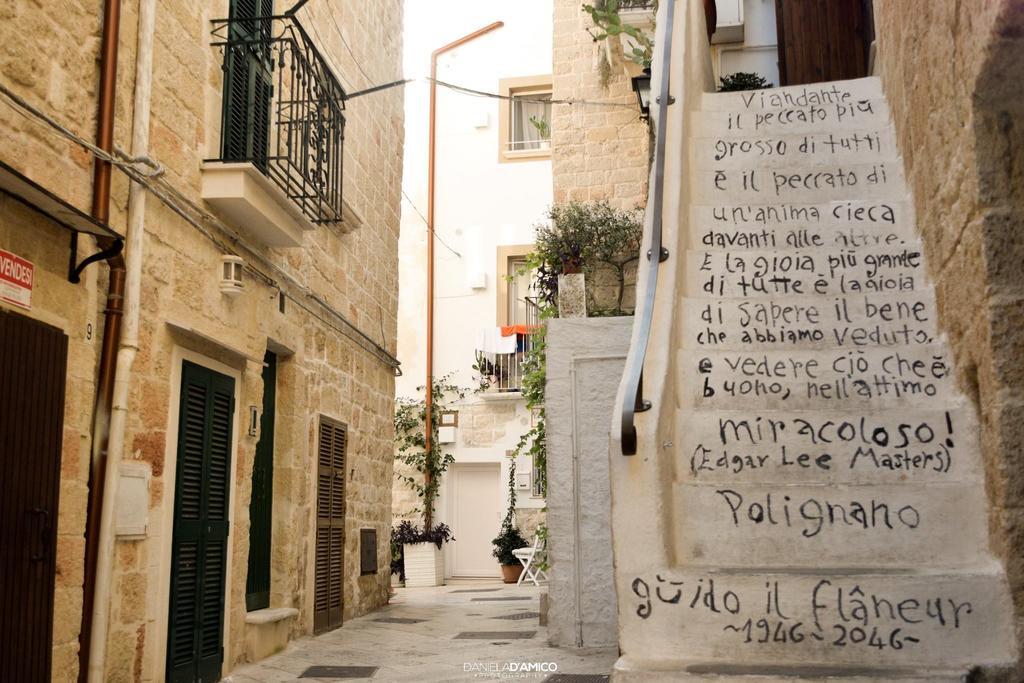 VENDESI
9
Viandante
il peccato più
grosso di tutti
è il peccato di
un'anima cieca
davanti alle altre.
E la gioia più grande
di tutte è la gioia
di sapere il bene
che abbiamo veduto.
e vedere ciò che è
buono, nell'attimo
miracoloso!
(Edgar Lee Masters)
Polignano
gŭido il flâneur
~1946~2046~
DANIELAD'AMICO
•PHOTOGRAPHY•